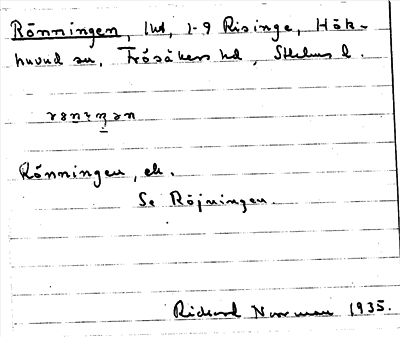 Rönningen, lht, 1-9 Risinge, Hök-
huvud sn, Frösåkers hd, Sthlms l.
Rönningen, ek.
Se Röjningen.
Richard Norrman 1935.